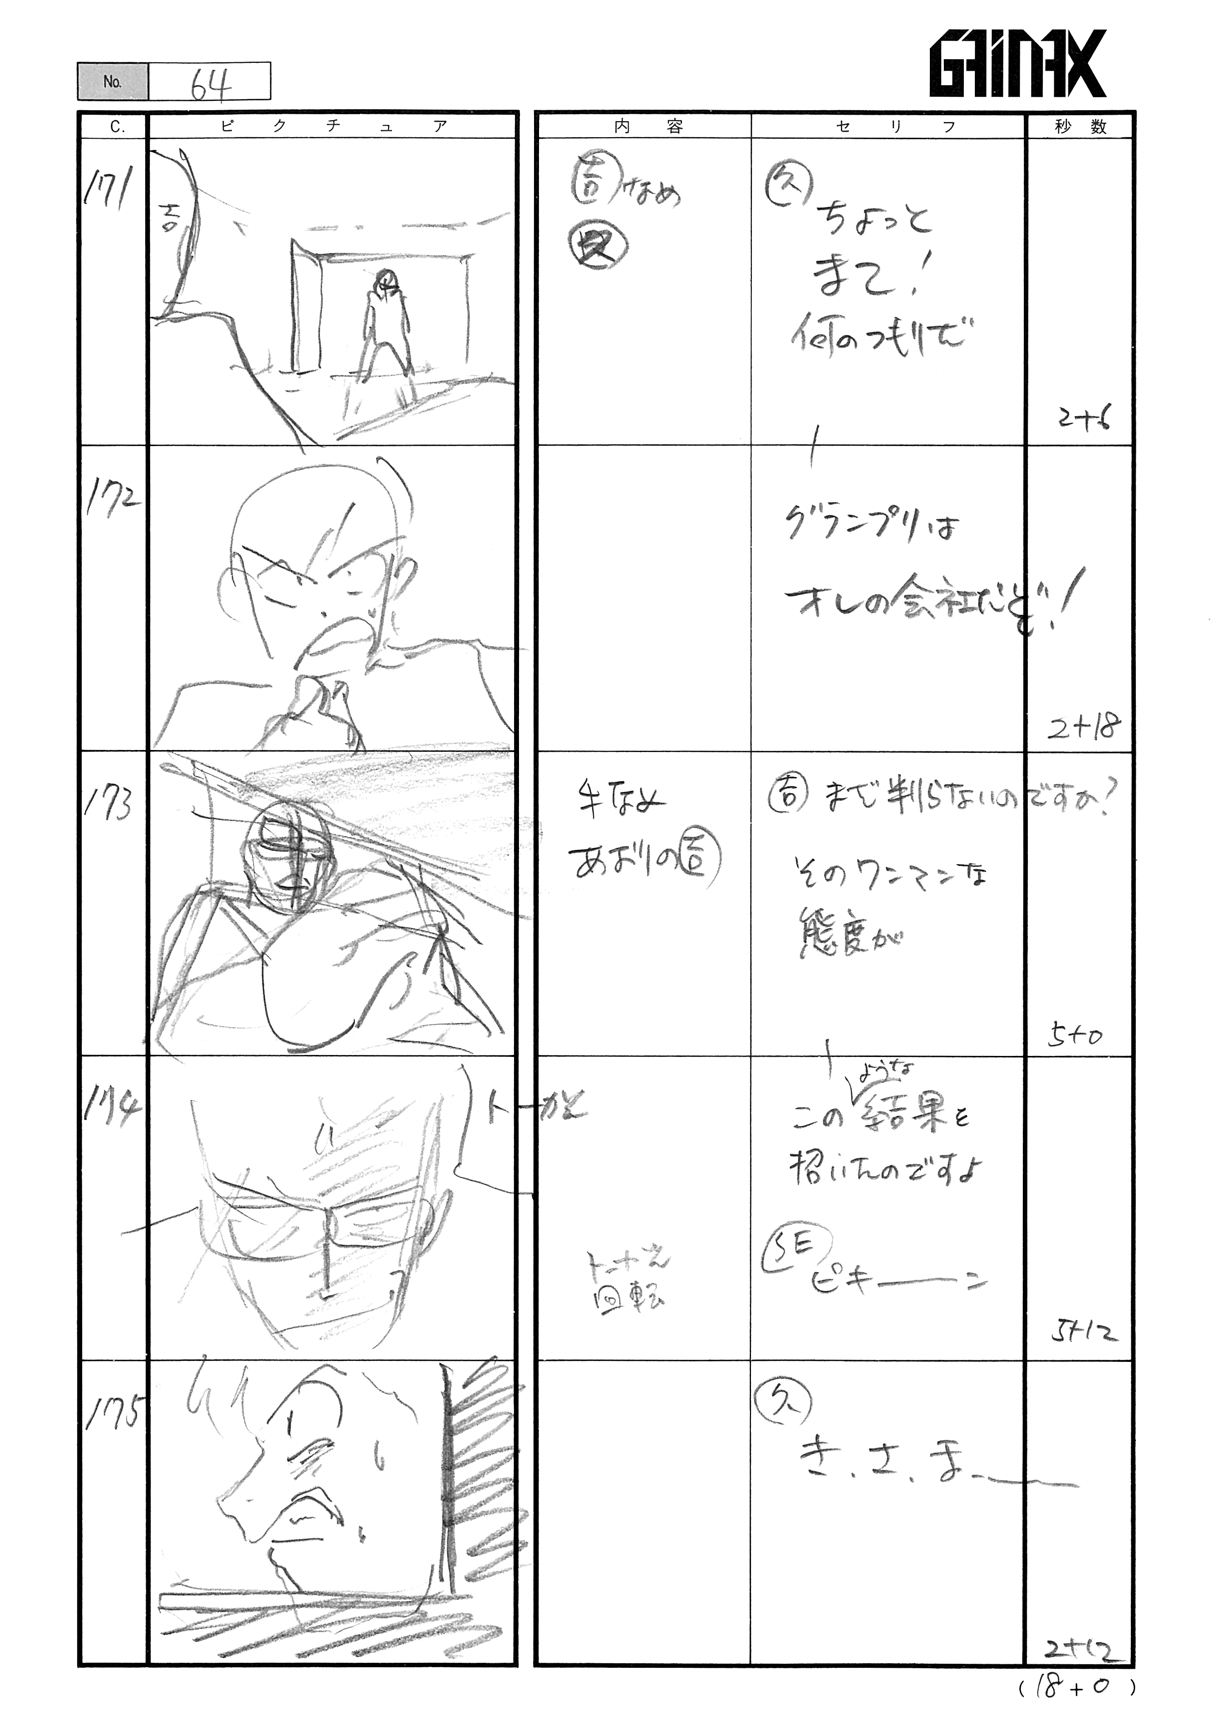 GAINAX
No. 64
C. ピクチュア 内容 セリフ 秒数
171
吉
吉 なめ
久
ちょっと
まて!
何のつもりだ
2+6
172
グランプリは
オレの会社だぞ!
2+18
173
手なめ
あおりの吉
吉 まだ判らないのですか?
そのワンマンな
態度が
5+0
174
トーかえ
ような
この結果を
招いたのですよ
回転
SE
ピキーーン
5+12
175
久
き、さ、ま、ー
2+12
(18+0)